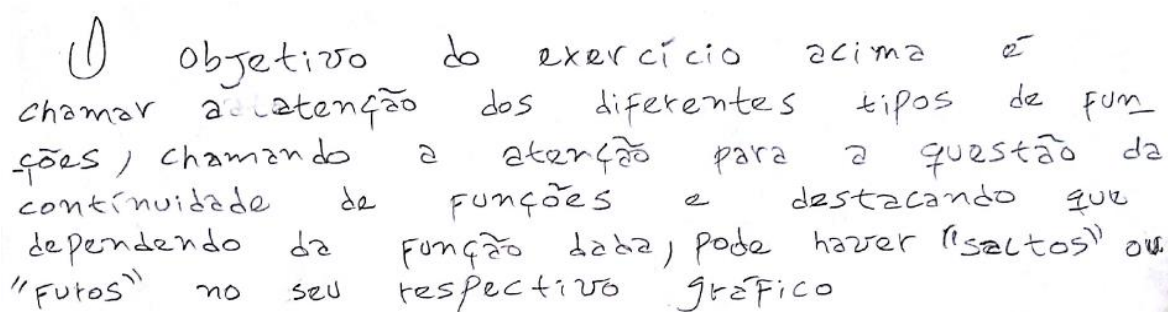 O objetivo do exercício acima é
chamar a atenção dos diferentes tipos de fun
ções, chamando a atenção para a questão da
continuidade de funções e destacando que
dependendo da função dada, pode haver "saltos" ou
"furos" no seu respectivo gráfico